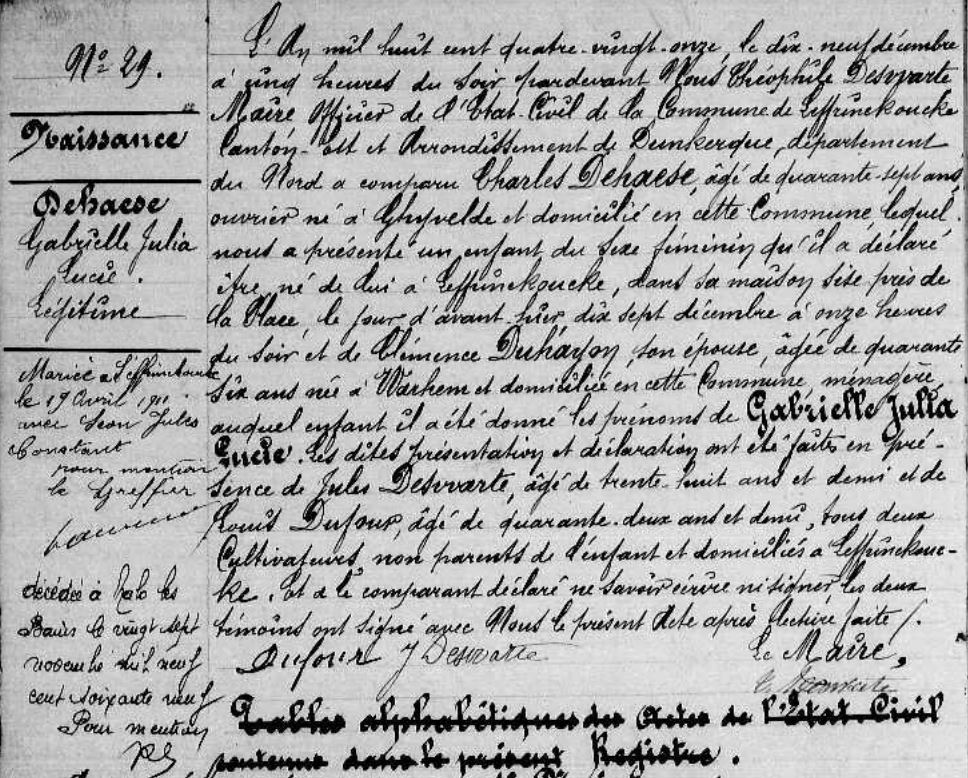 N° 29.
Naissance
Dehaese
Gabrielle Julia
Lucie.
Légitime
Mariée à Leffrinckoucke
le 19 Avril 1911
avec Léon Jules
Constant
pour mention
le Greffier
décédée à Malo les
Bains le vingt sept
novembre mil neuf
cent soixante neuf
Pour mention
L'An mil huit cent quatre-vingt-onze, le dix-neuf décembre
à cinq heures du soir pardevant Nous Théophile Deswarte
Maire Officier de l'Etat-Civil de la Commune de Leffrinckoucke
Canton-Est et Arrondissement de Dunkerque, département
du Nord a comparu Charles Dehaese, âgé de quarante-sept ans,
ouvrier né à Ghyvelde et domicilié en cette Commune lequel
nous a présenté un enfant du sexe féminin qu'il a déclaré
être né de lui à Leffrinckoucke, dans sa maison sise près de
la Place, le jour d'avant-hier dix sept décembre à onze heures
du soir et de Clémence Duhayon, son épouse, âgée de quarante
six ans née à Warhem et domiciliée en cette Commune, ménagère,
auquel enfant il a été donné les prénoms de Gabrielle Julia
Lucie. Les dites présentation et déclaration ont été faites en pré-
sence de Jules Deswarte, âgé de trente-huit ans et demi et de
Louis Dufour, âgé de quarante-deux ans et demi, tous deux
Cultivateurs, non parents de l'enfant et domiciliés à Leffrinckouc-
ke. Et a le comparant déclaré ne savoir écrire ni signer les deux
témoins ont signé avec Nous le présent Acte après lecture faite /.
Dufour J Deswarte Le Maire,
Tables alphabétiques des Actes de l'Etat-Civil
contenus dans le présent Registre.